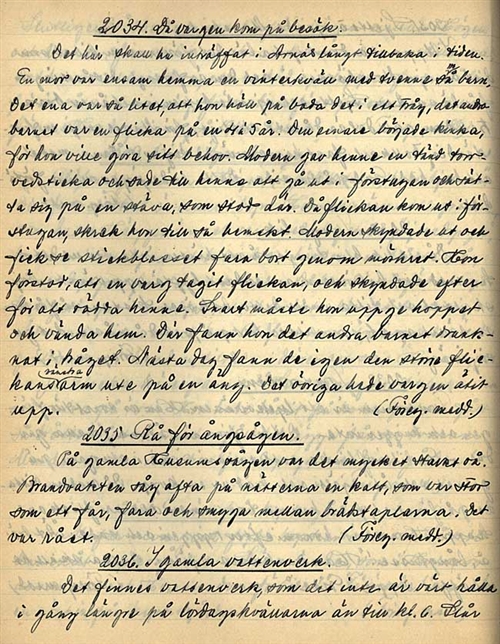 2034. Då vargen kom på besök.
Det här skall ha inträffat i Arnäs långt tillbaka i tiden.
En mor var ensam hemma en vinterkväll med tvenne små barn.
Det ena var så litet, att hon höll på bada det i ett tråg, det andra
barnet var en flicka på en 4 i 5 år. Den senare började kinka,
för hon ville göra sitt behov. Modern gav henne en tänd torr-
vedsticka och sade till henne att gå ut i förstugan och sät-
ta sig på en stäva, som stod där. Då flickan kom ut i för-
stugan, skrek hon till så hemskt. Modern skyndade ut och
fick se stickblosset fara bort genom mörkret. Hon
förstod, att en varg tagit flickan, och skyndade efter
för att rädda henne. Snart måste hon uppge hoppet
och vända hem. Där fann hon det andra barnet drunk-
nat i tråget. Nästa dag fann de igen den större flic-
kans vänstra arm ute på en äng. Det övriga hade vargen ätit
upp. (Föreg. medd.)
2035 Rå för ångsågen.
På gamla Husumssågen var det mycket starkt rå.
Brandvakten såg ofta på nätterna en katt, som var stor
som ett får, fara och smyga mellan brädstaplarna. Det
var rået. (Föreg. medd.)
2036. I gamla vattenverk.
Det finnes vattenverk, som det inte är värt hålla
i gång längre på lördagskvällarna än till kl. 6. Slår